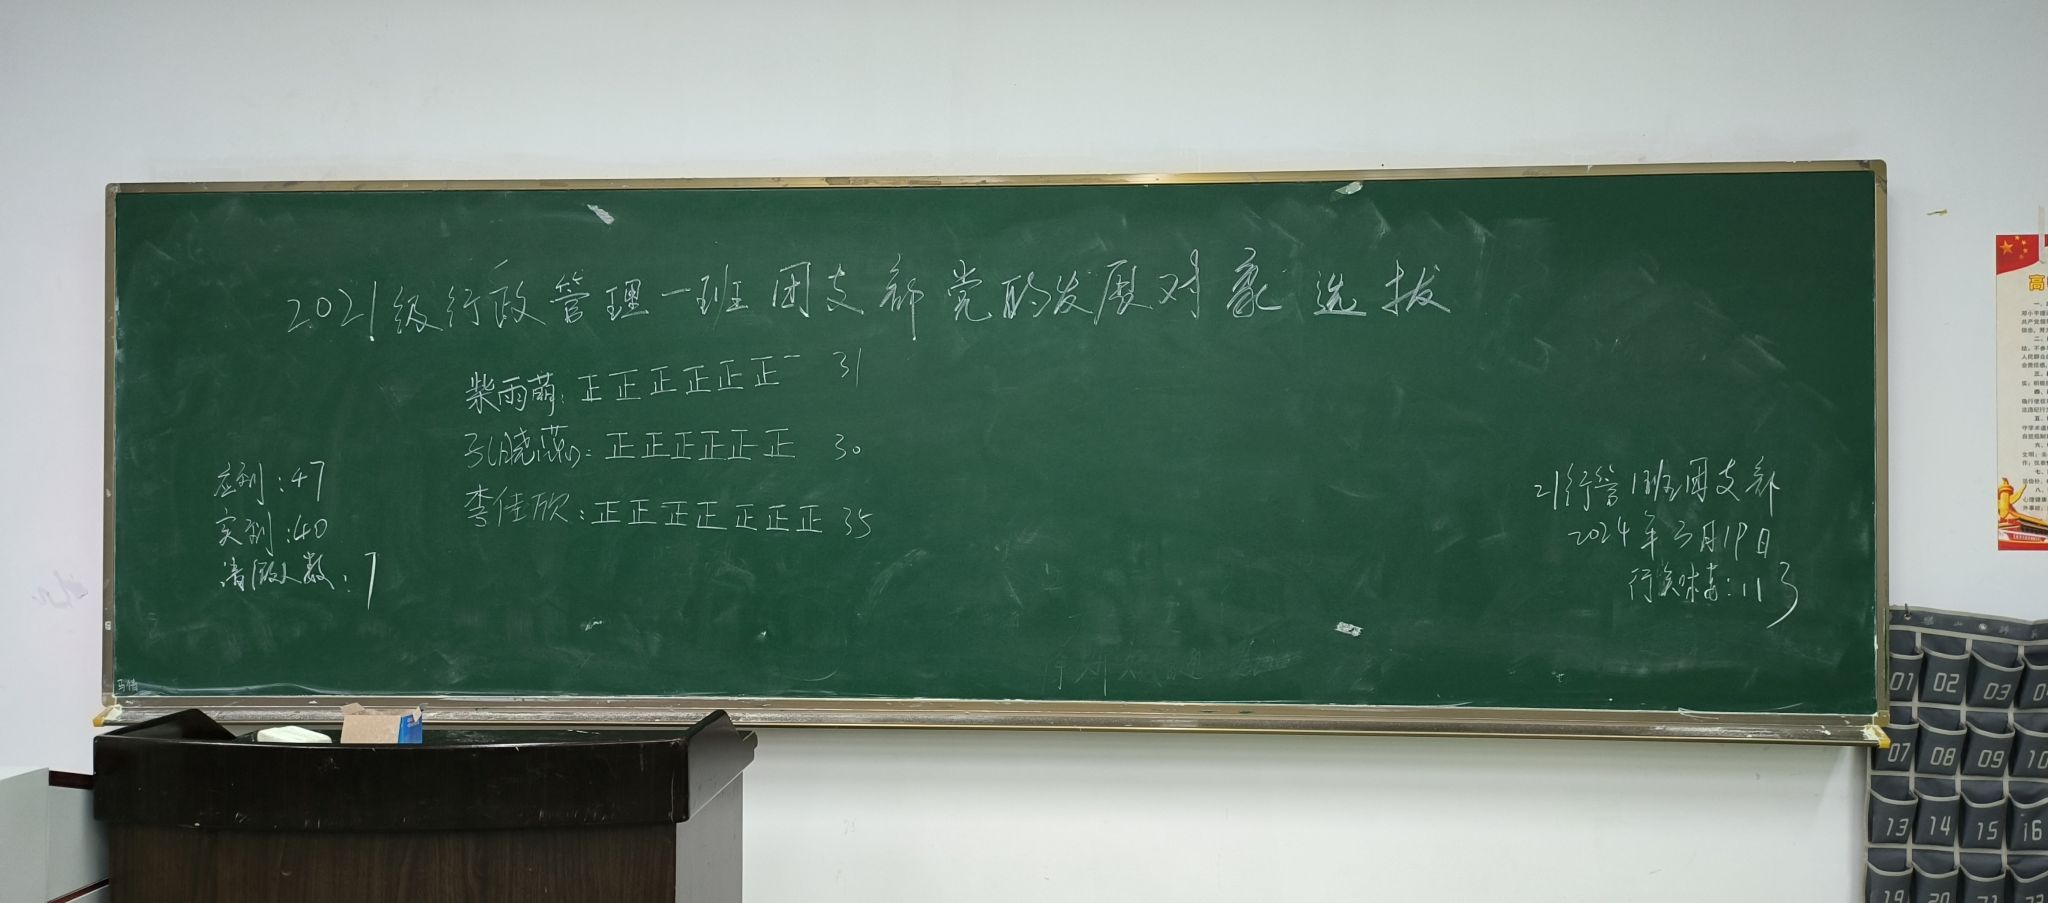 2021级行政管理一班团支部党的发展对象选拔
柴雨萌：正正正正正正一 31
孔晓燕：正正正正正正 30
李佳欣：正正正正正正正 35
应到：47
实到：40
请假人数：7
21行管1班团支部
2024年3月19日
113
01 02 03
07 08 09 10
13 14 15 16
19 20 21 22